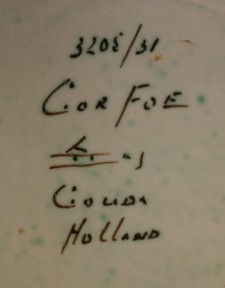 3205/31
COR FOE
GOUDA
HOLLAND